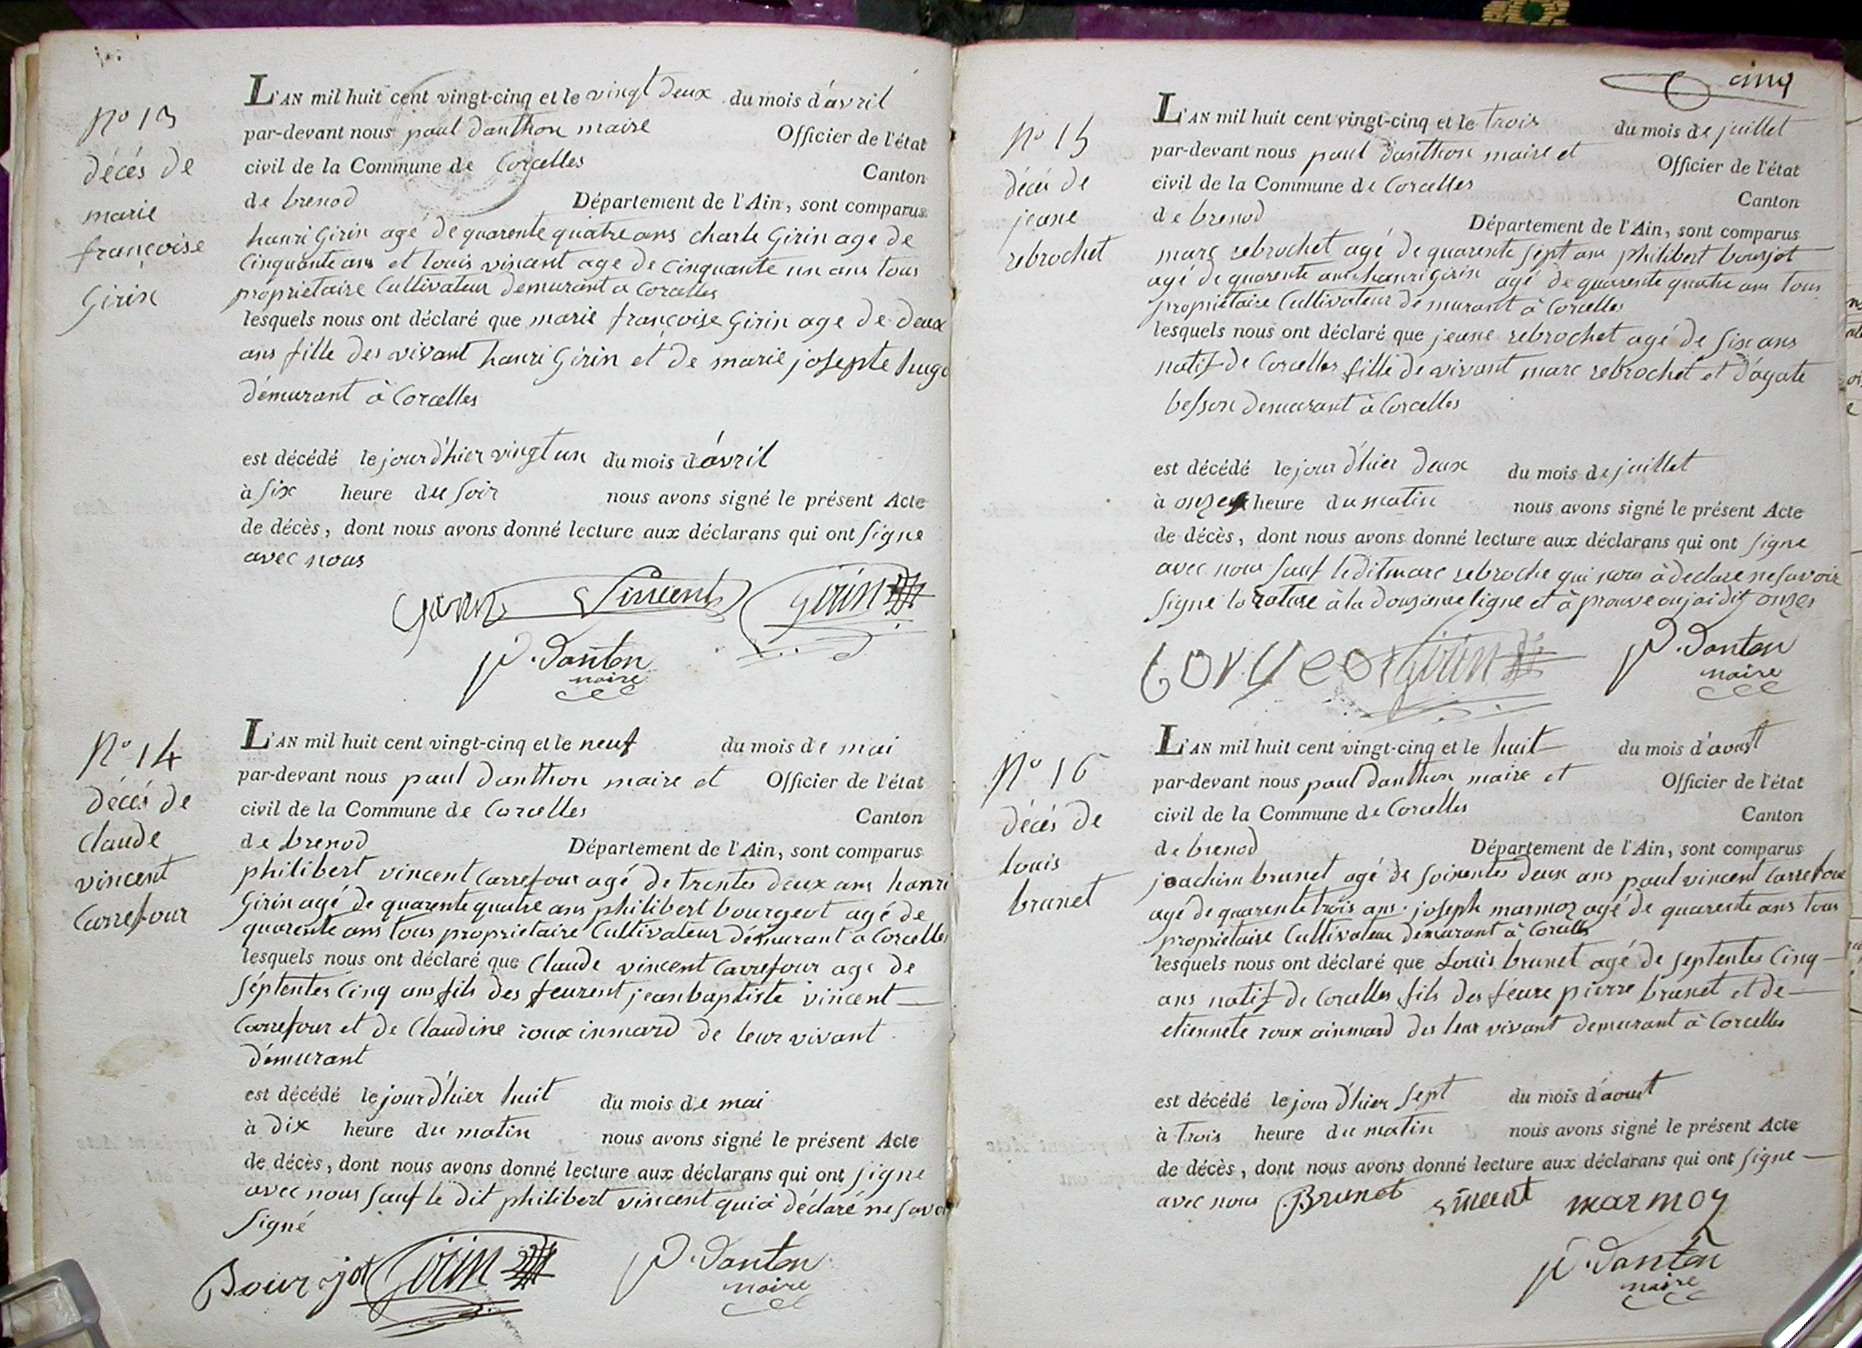 N° 13
décés de
marie
françoise
Girin
L'AN mil huit cent vingt-cinq et le vingt deux du mois d'avril
par-devant nous paul danthon maire Officier de l'état
civil de la Commune de Corcelles Canton
de brenod Département de l'Ain, sont comparus
hanri Girin agé de quarente quatre ans charle Girin age de
Cinquante ans et louis vincent age de cinquante un ans tous
propriétaire Cultivateur demurant a Corcelles
lesquels nous ont déclaré que marie françoise Girin age de deux
ans fille des vivant hanri Girin et de marie josepte hugo
démurant à Corcelles
est décédé le jour d'hier vingt un du mois d'avril
à six heure du soir nous avons signé le présent Acte
de décès, dont nous avons donné lecture aux déclarans qui ont signe
avec nous
Girin Vincent Girin
P. Danton
maire
N° 14
décés de
Claude
vincent
Carrefour
L'AN mil huit cent vingt-cinq et le neuf du mois de mai
par-devant nous paul danthon maire et Officier de l'état
civil de la Commune de Corcelles Canton
de brenod Département de l'Ain, sont comparus
philibert vincent Carrefour agé de trentes deux ans hanri
Girin agé de quarente quatre ans philibert bourgeot agé de
quarente ans tous propriétaire Cultivateur démurant a Corcelles
lesquels nous ont déclaré que Claude vincent Carrefour age de
séptentes Cinq ans fils des feurent jean baptiste vincent
Carrefour et de Claudine roux inmard de leur vivant
démurant
est décédé le jour d'hier huit du mois de mai
à dix heure du matin nous avons signé le présent Acte
de décès, dont nous avons donné lecture aux déclarans qui ont signe
avec nous sauf le dit philibert vincent qui à déclaré ne savoir
signé
Bourjot Girin P. Danton
maire
cinq
N° 15
décés de
jeane
rebrochet
L'AN mil huit cent vingt-cinq et le trois du mois de juillet
par-devant nous paul danthon maire et Officier de l'état
civil de la Commune de Corcelles Canton
de brenod Département de l'Ain, sont comparus
marc rebrochet agé de quarente sept ans philibert bourjot
agé de quarente ans hanri Girin agé de quarente quatre ans tous
propriétaire Cultivateur démurant à Corcelles
lesquels nous ont déclaré que jeane rebrochet agé de six ans
natif de Corcelles fille de vivant marc rebrochet et d'agate
besson demurant à Corcelles
est décédé le jour d'hier deux du mois de juillet
à onze heure du matin nous avons signé le présent Acte
de décès, dont nous avons donné lecture aux déclarans qui ont signe
avec nous sauf ledit marc rebroche qui nous à declare ne savoir
signe la rature à la douzieme ligne et à prouve ou jai dit onzes
Girin P. Danton
maire
N° 16
décés de
louis
brunet
L'AN mil huit cent vingt-cinq et le huit du mois d'aoust
par-devant nous paul danthon maire et Officier de l'état
civil de la Commune de Corcelles Canton
de brenod Département de l'Ain, sont comparus
joachim brunet agé de soixentes deux ans paul vincent Carrefour
agé de quarente trois ans joseph marmoz agé de quarente ans tous
propriétaise Cultivateur démurant à Corcelles
lesquels nous ont déclaré que Louis brunet agé de septentes Cinq
ans natif de Corcelles fils des feure pierre brunet et de
etiennete roux ainmard des leur vivant demurant à Corcelles
est décédé le jour d'hier sept du mois d'aoust
à trois heure du matin nous avons signé le présent Acte
de décès, dont nous avons donné lecture aux déclarans qui ont signe
avec nous Brunet vincent marmoz
P. Danton
maire